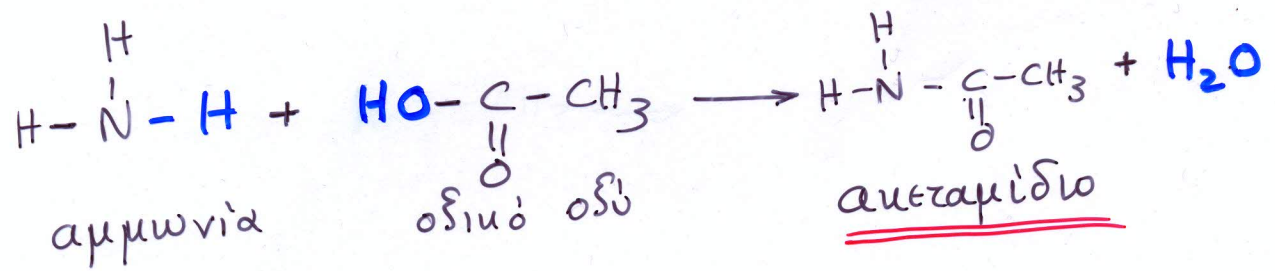 H
H – N – H + HO – C – CH3 → H – N – C – CH3 + H2O
H
O
O
αμμωνία
οξικό οξύ
ακεταμίδιο